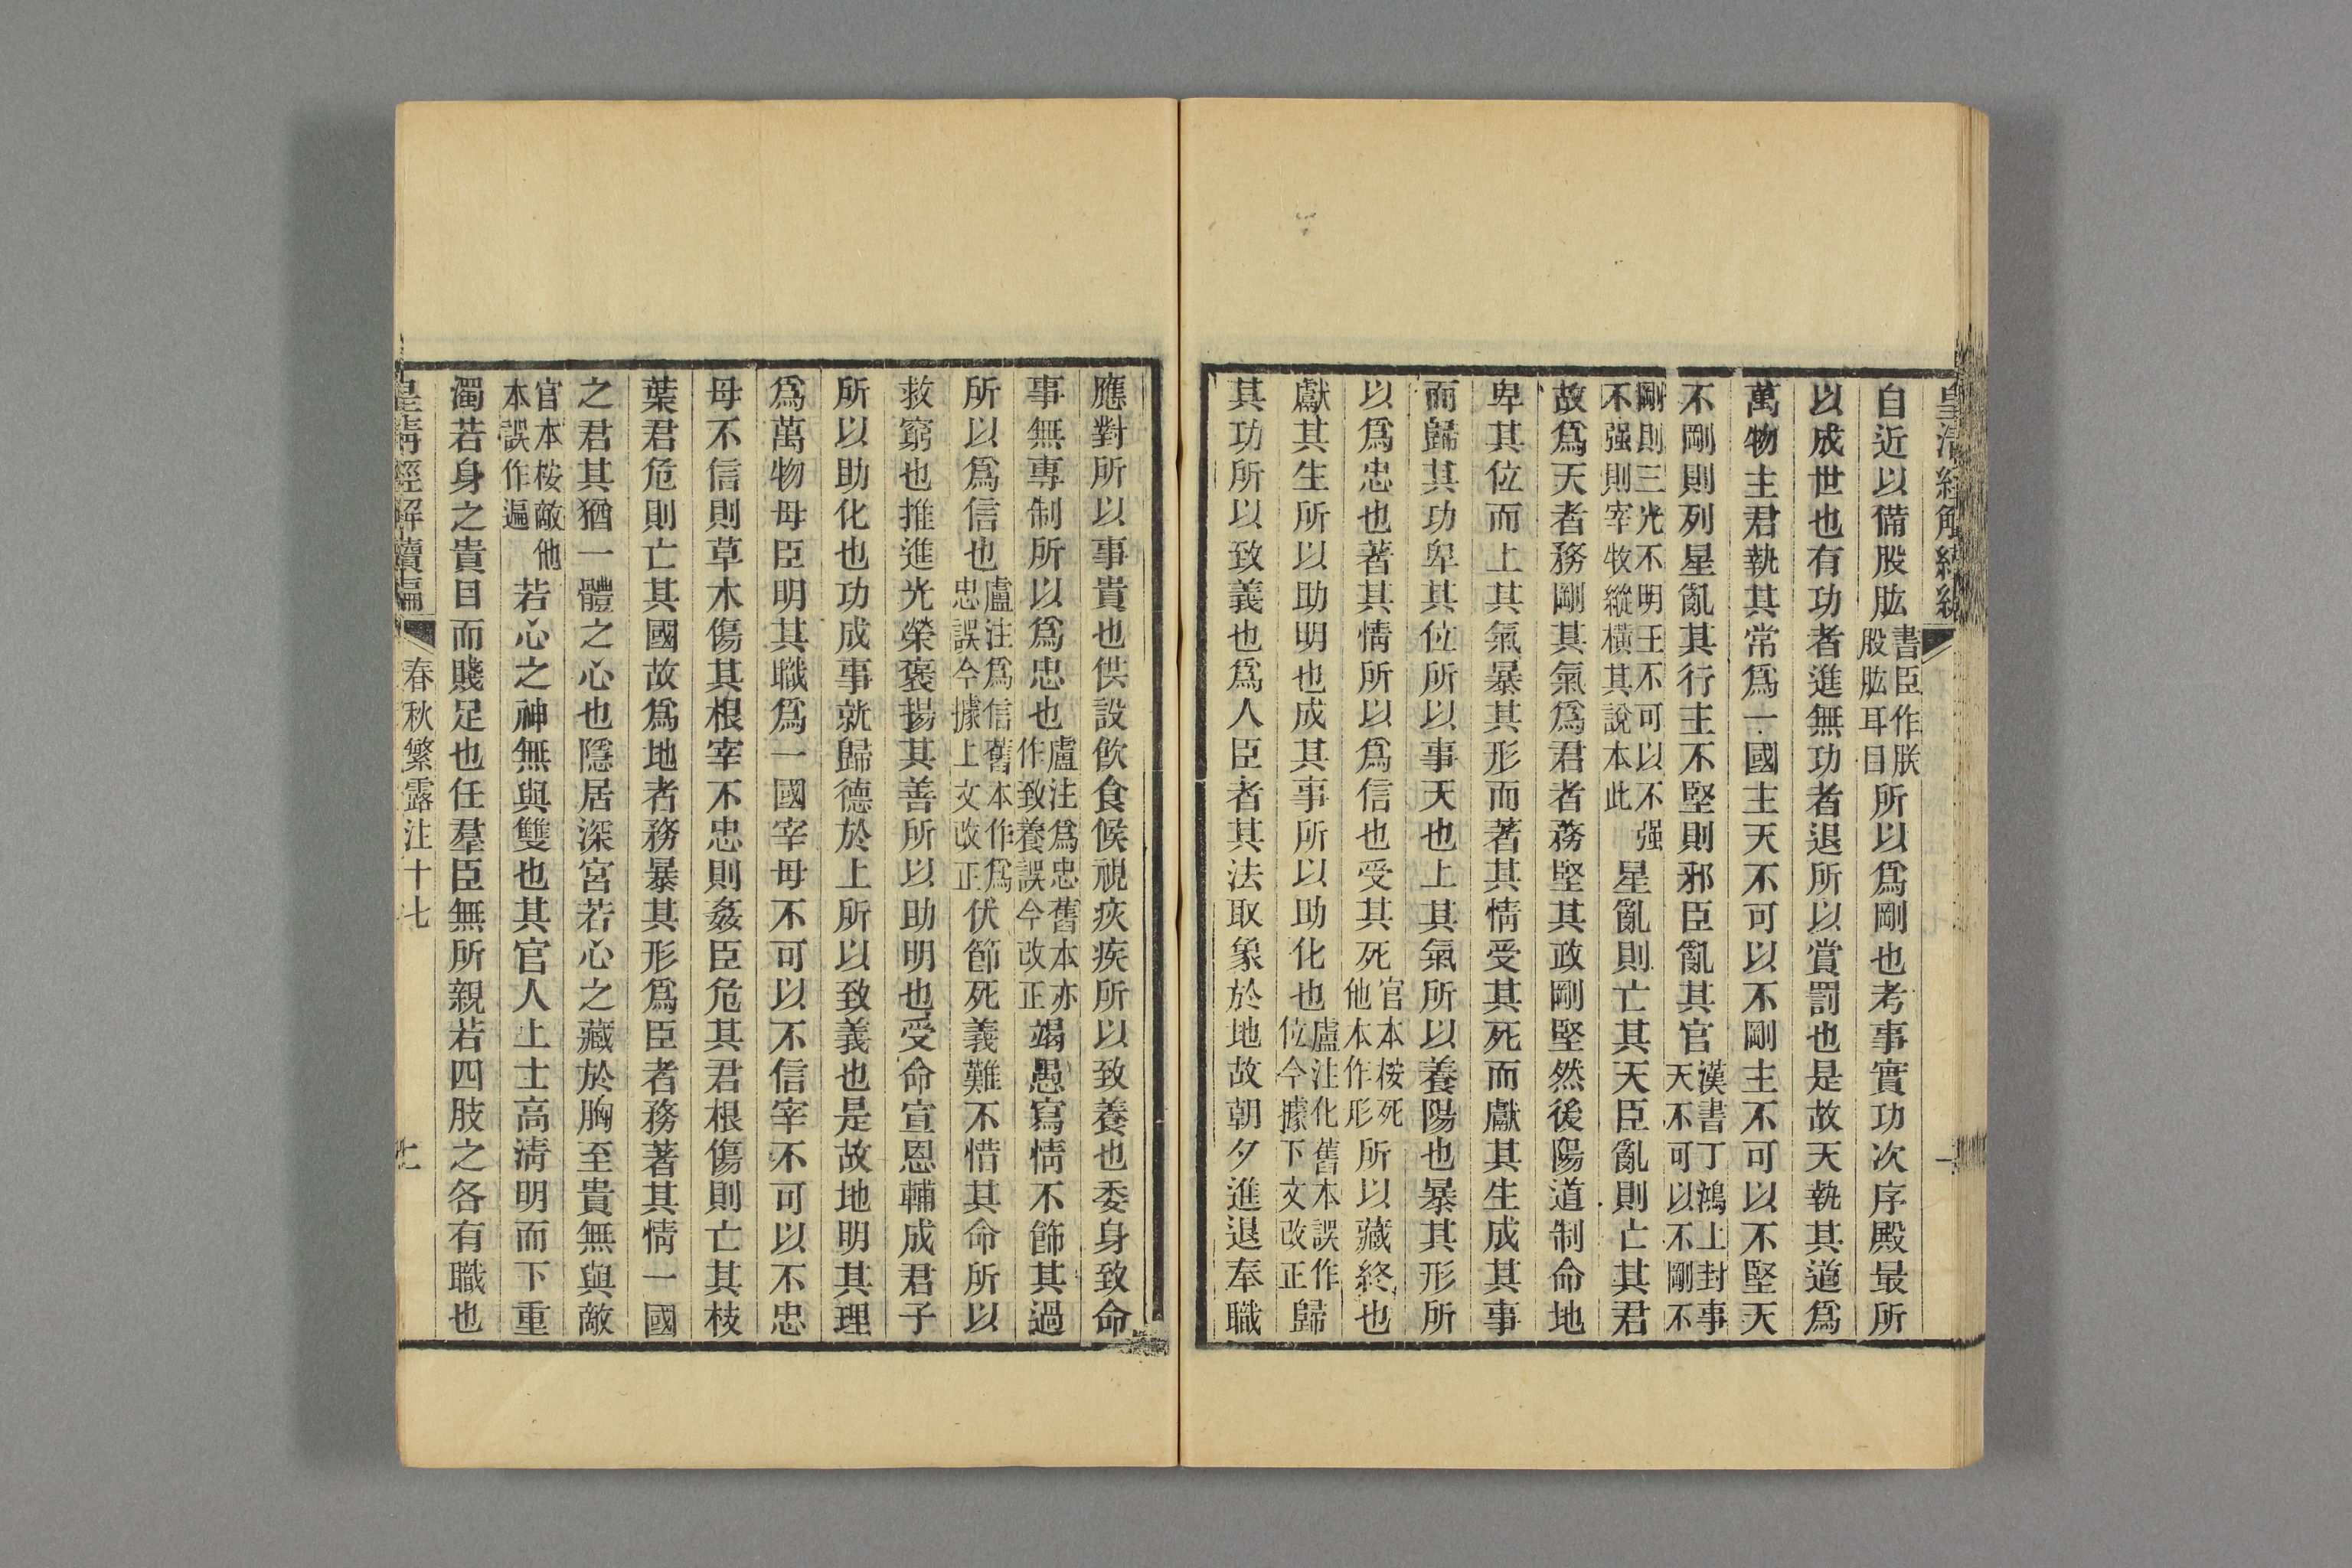 皇清經解續編
自近以備股肱書臣作朕股肱耳目所以為剛也考事實功次序殿最所
以成世也有功者進無功者退所以賞罰也是故天執其道爲
萬物主君執其常爲一國主天不可以不剛主不可以不堅天
不剛則列星亂其行主不堅則邪臣亂其官漢書丁鴻上封事天不可以不剛不
剛則三光不明王不可以不强不强則宰牧縱橫其說本此星亂則亡其天臣亂則亡其君
故爲天者務剛其氣爲君者務堅其政剛堅然後陽道制命地
卑其位而上其氣暴其形而著其情受其死而獻其生成其事
而歸其功卑其位所以事天也上其氣所以養陽也暴其形所
以爲忠也著其情所以爲信也受其死官本桉死他本作形所以藏終也
獻其生所以助明也成其事所以助化也盧注化舊本誤作位今據下文改正歸
其功所以致義也爲人臣者其法取象於地故朝夕進退奉職
應對所以事貴也供設飲食候視疢疾所以致養也委身致命
事無專制所以爲忠也盧注爲忠舊本亦作致養誤今改正竭愚寫情不飾其過
所以爲信也盧注爲信舊本作爲忠誤今據上文改正伏節死義難不惜其命所以
救窮也推進光榮褒揚其善所以助明也受命宣恩輔成君子
所以助化也功成事就歸德於上所以致義也是故地明其理
爲萬物母臣明其職爲一國宰母不可以不信宰不可以不忠
母不信則草木傷其根宰不忠則姦臣危其君根傷則亡其枝
葉君危則亡其國故爲地者務暴其形爲臣者務著其情一國
之君其猶一體之心也隱居深宮若心之藏於胸至貴無與敵
官本桉敵他本誤作遍若心之神無與雙也其官人上士高清明而下重
濁若身之貴目而賤足也任羣臣無所親若四肢之各有職也
皇清經解續編 春秋繁露注十七